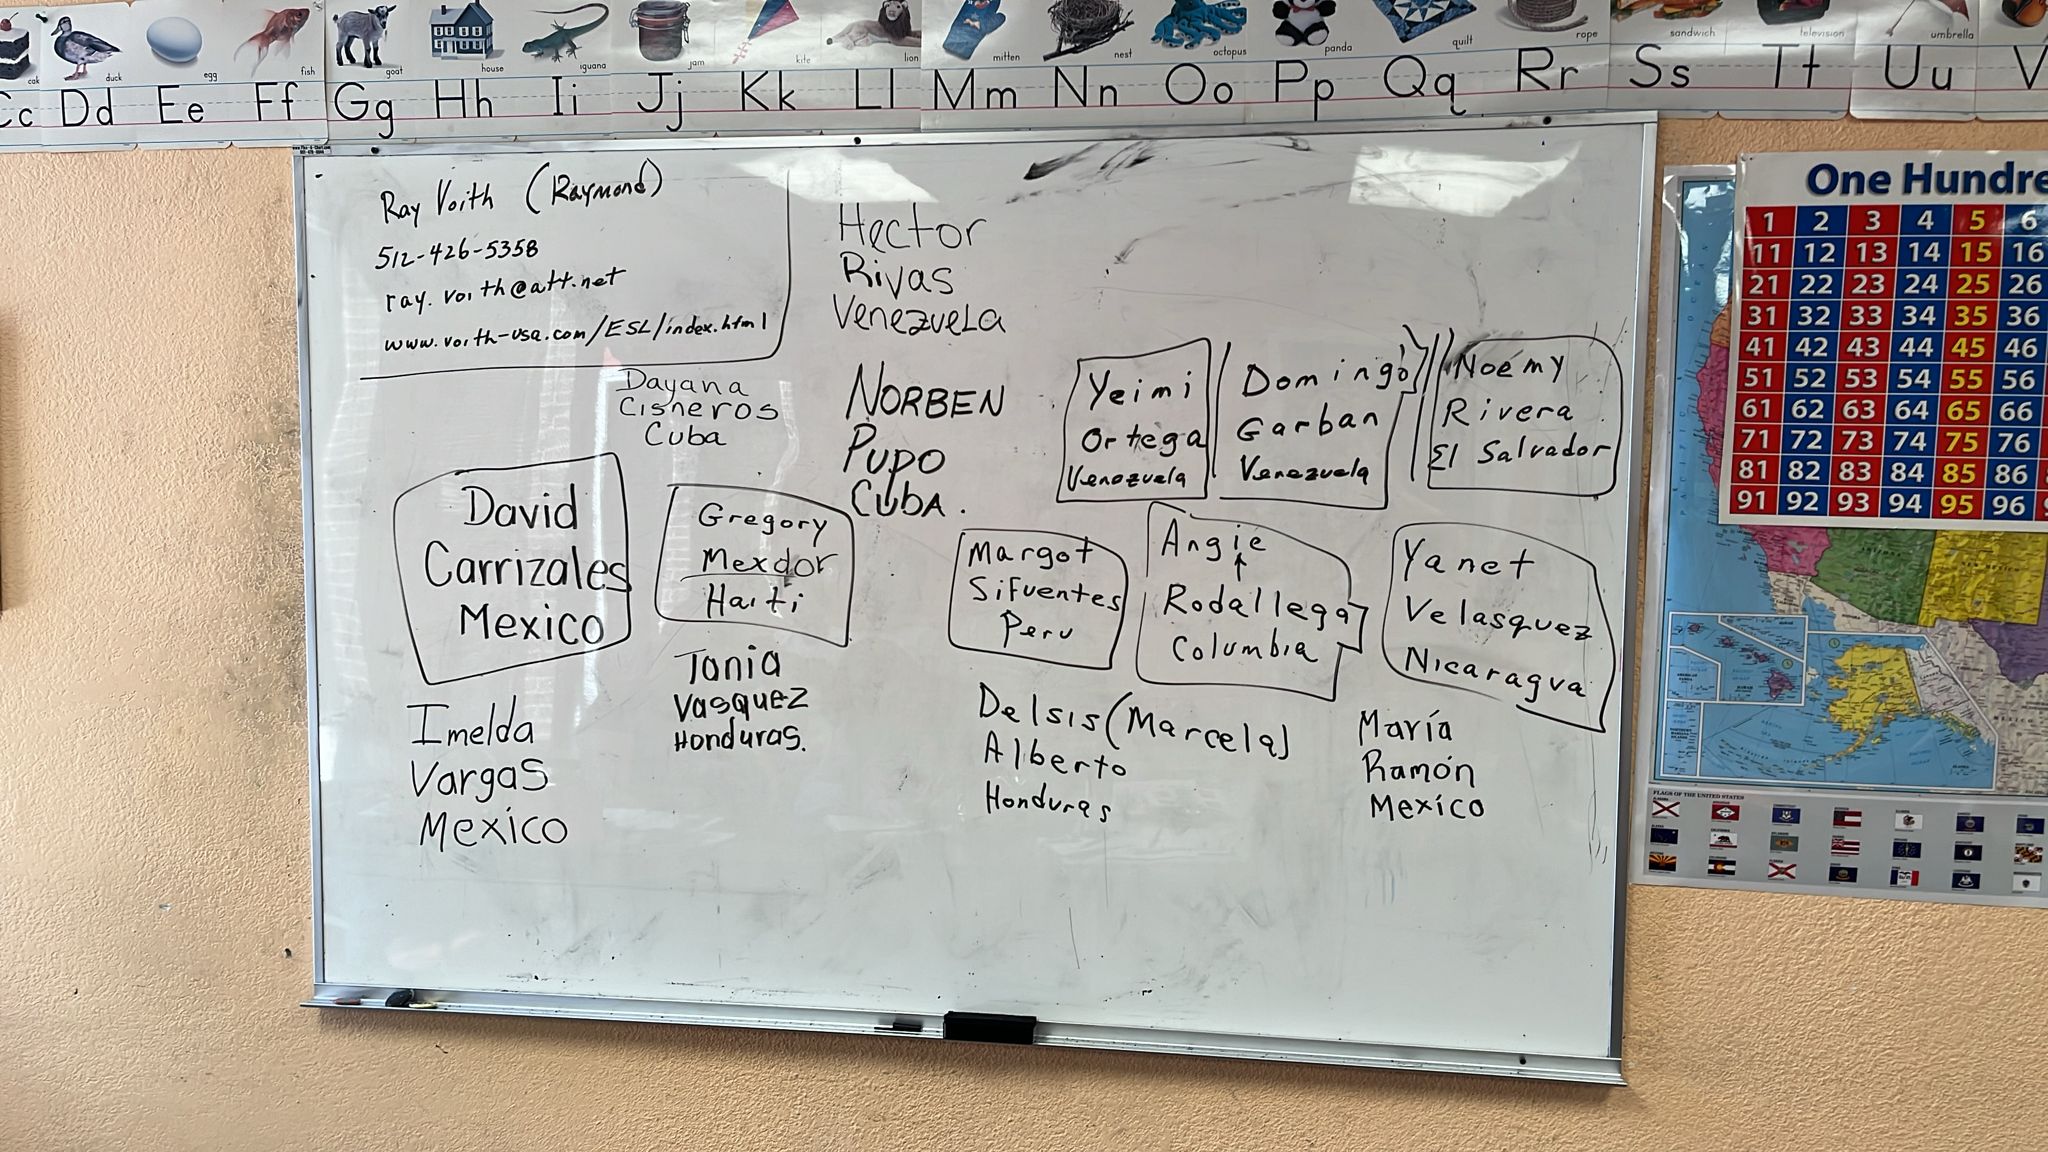 cak
duck
egg
fish
goat
house
iguana
jam
kite
lion
mitten
nest
octopus
panda
quilt
rope
sandwich
television
umbrella
Cc Dd Ee Ff Gg Hh Ii Jj Kk Ll Mm Nn Oo Pp Qq Rr Ss Tt Uu V
Ray Voith (Raymond)
512-426-5358
ray.voith@att.net
www.voith-usa.com/ESL/index.html
Hector
Rivas
Venezuela
Dayana
Cisneros
Cuba
NORBEN
PUPO
CUBA.
Yeimi
Ortega
Venezuela
Domingo
Garban
Venezuela
Noemy
Rivera
El Salvador
David
Carrizales
Mexico
Gregory
Mexdor
Haiti
Margot
Sifuentes
Peru
Angie
Rodallega
Columbia
Yanet
Velasquez
Nicaragua
Imelda
Vargas
Mexico
Tania
Vasquez
Honduras.
Delsis (Marcela)
Alberto
Honduras
María
Ramón
México
One Hundre
1 2 3 4 5 6
11 12 13 14 15 16
21 22 23 24 25 26
31 32 33 34 35 36
41 42 43 44 45 46
51 52 53 54 55 56
61 62 63 64 65 66
71 72 73 74 75 76
81 82 83 84 85 86
91 92 93 94 95 96
FLAGS OF THE UNITED STATES